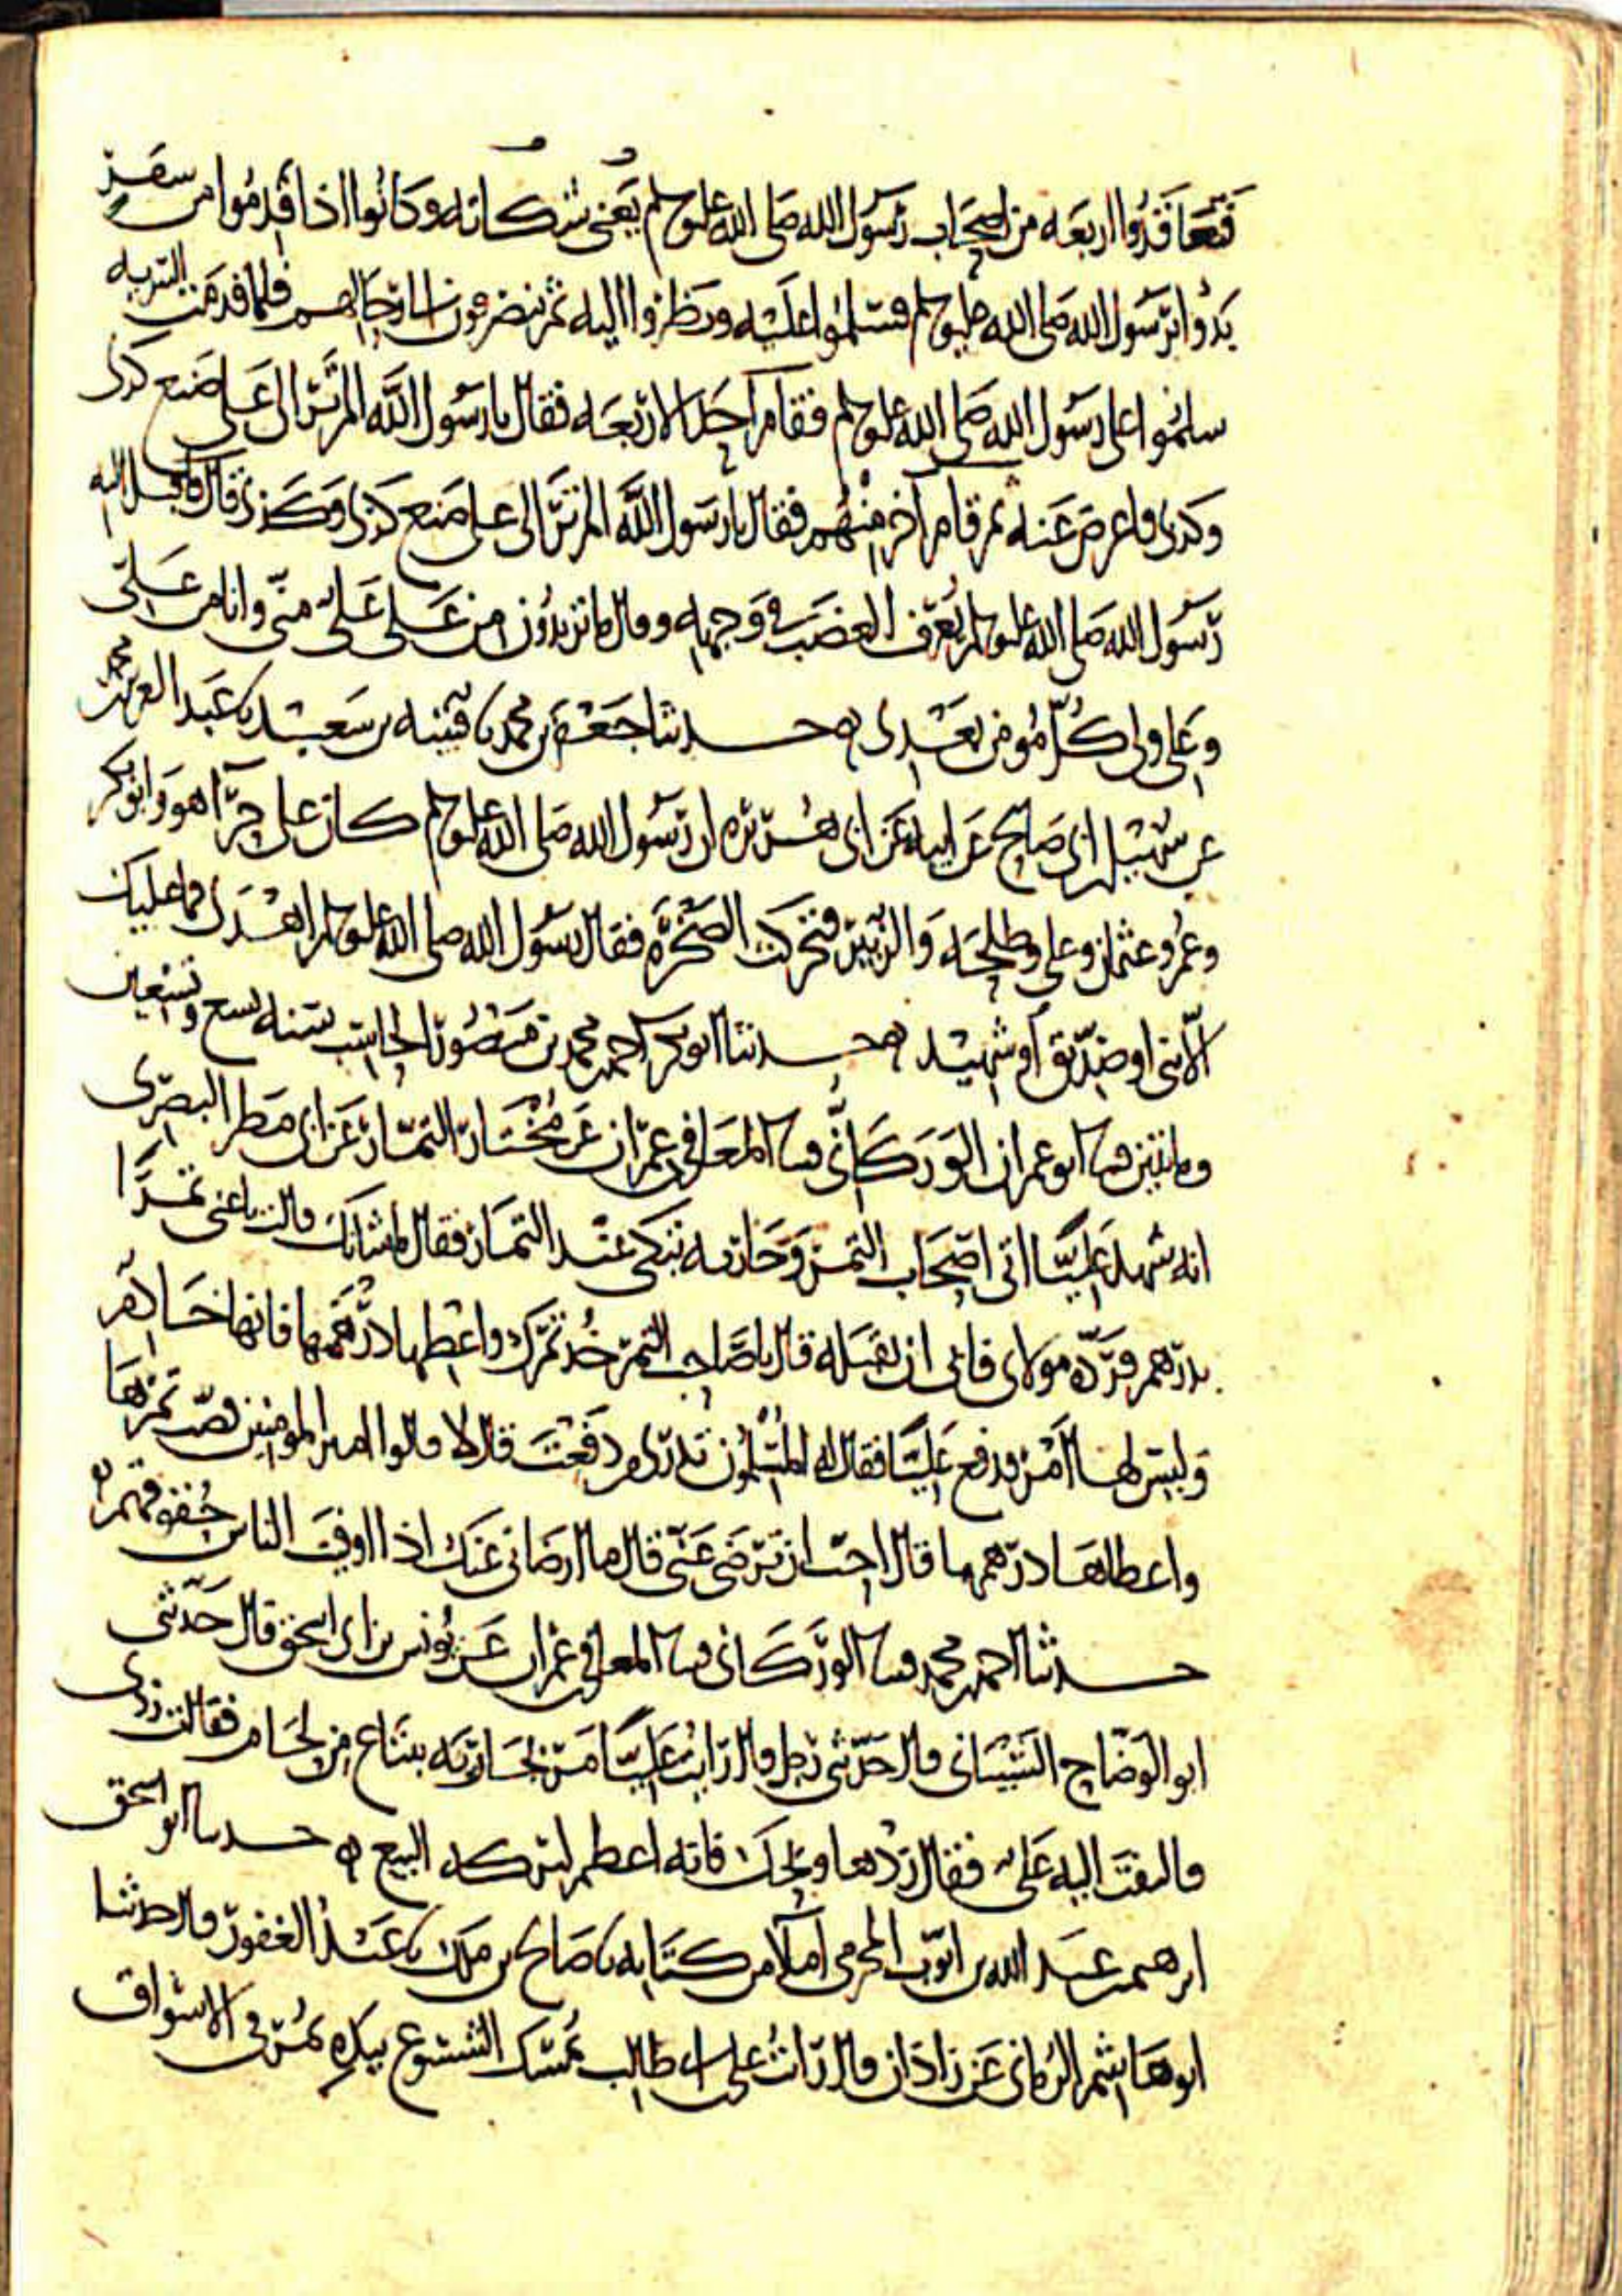 فتعاقدوا اربعه من اصحاب رسول الله صلى الله عليه وسلم يعني شكاته وكانوا اذا قدموا من سفر
بدؤا برسول الله صلى الله عليه وسلم فسلموا عليه ونظروا اليه ثم ينصرفون الى رحالهم فلما قدمت السريه
سلموا على رسول الله صلى الله عليه وسلم فقام احد الاربعه فقال يا رسول الله الم تر الى علي صنع كذى
وكذى فاعرض عنه ثم قام آخر منهم فقال يا رسول الله الم تر الى علي صنع كذى وكذى قال فاقبل اليه
رسول الله صلى الله عليه وسلم يعرف الغضب في وجهه وقال ما تريدون من علي علي مني وانا من علي
وعلي ولي كل مومن بعدي ه حدثنا جعفر بن محمد نا قتيبه بن سعيد نا عبد العزيز بن محمد
عن سهيل بن ابي صالح عن ابيه عن ابي هريره ان رسول الله صلى الله عليه وسلم كان على حرآ هو وابو بكر
وعمر وعثمان وعلي وطلحه والزبير فتحركت الصخرة فقال رسول الله صلى الله عليه وسلم اهدى فما عليك
الا نبي او صديق او شهيد ه حدثنا ابو بكر احمد بن محمد بن منصور الحاسب سنه تسع وتسعين
وماتين قثنا ابو عمران الوركاني قثنا المعافى بن عمران عن مختار التمار عن ابي مطر البصري
انه شهد عليا اتى اصحاب التمر وجاريه تبكي عند التمار فقال ما شانك قالت باعني تمرا
بدرهم فرده مولاي فابى ان يقبله قال يا صاحب التمر خذ تمرك واعطها درهمها فانها خادم
وليس لها امر فدفع عليا فقال له المسلمون تدري من دفعت قال لا قالوا امير المومنين فصب تمرها
واعطاها درهمها قال احب ان ترضى عني قال ما ارضاني عنك اذا اوفيت الناس حقوقهم ه
حدثنا احمد بن محمد قثنا الوركاني قثنا المعافى بن عمران عن يونس بن ابي اسحق قال حدثني
ابو الوضاح الشيباني قال حدثني رجل قال رايت عليا مر بجاريه تبتاع من لحام فقالت زدني
فالتفت اليه علي فقال زدها ويحك فانه اعظم لبركه البيع ه حدثنا ابو اسحق
ابرهيم بن عبد الله بن ايوب المخرمي املا من كتابه نا صالح بن ملك نا عبد الغفور قال حدثنا
ابو هاشم الرماني عن زاذان قال رايت علي بن ابي طالب يمسك الشسوع بيده يمر في الاسواق